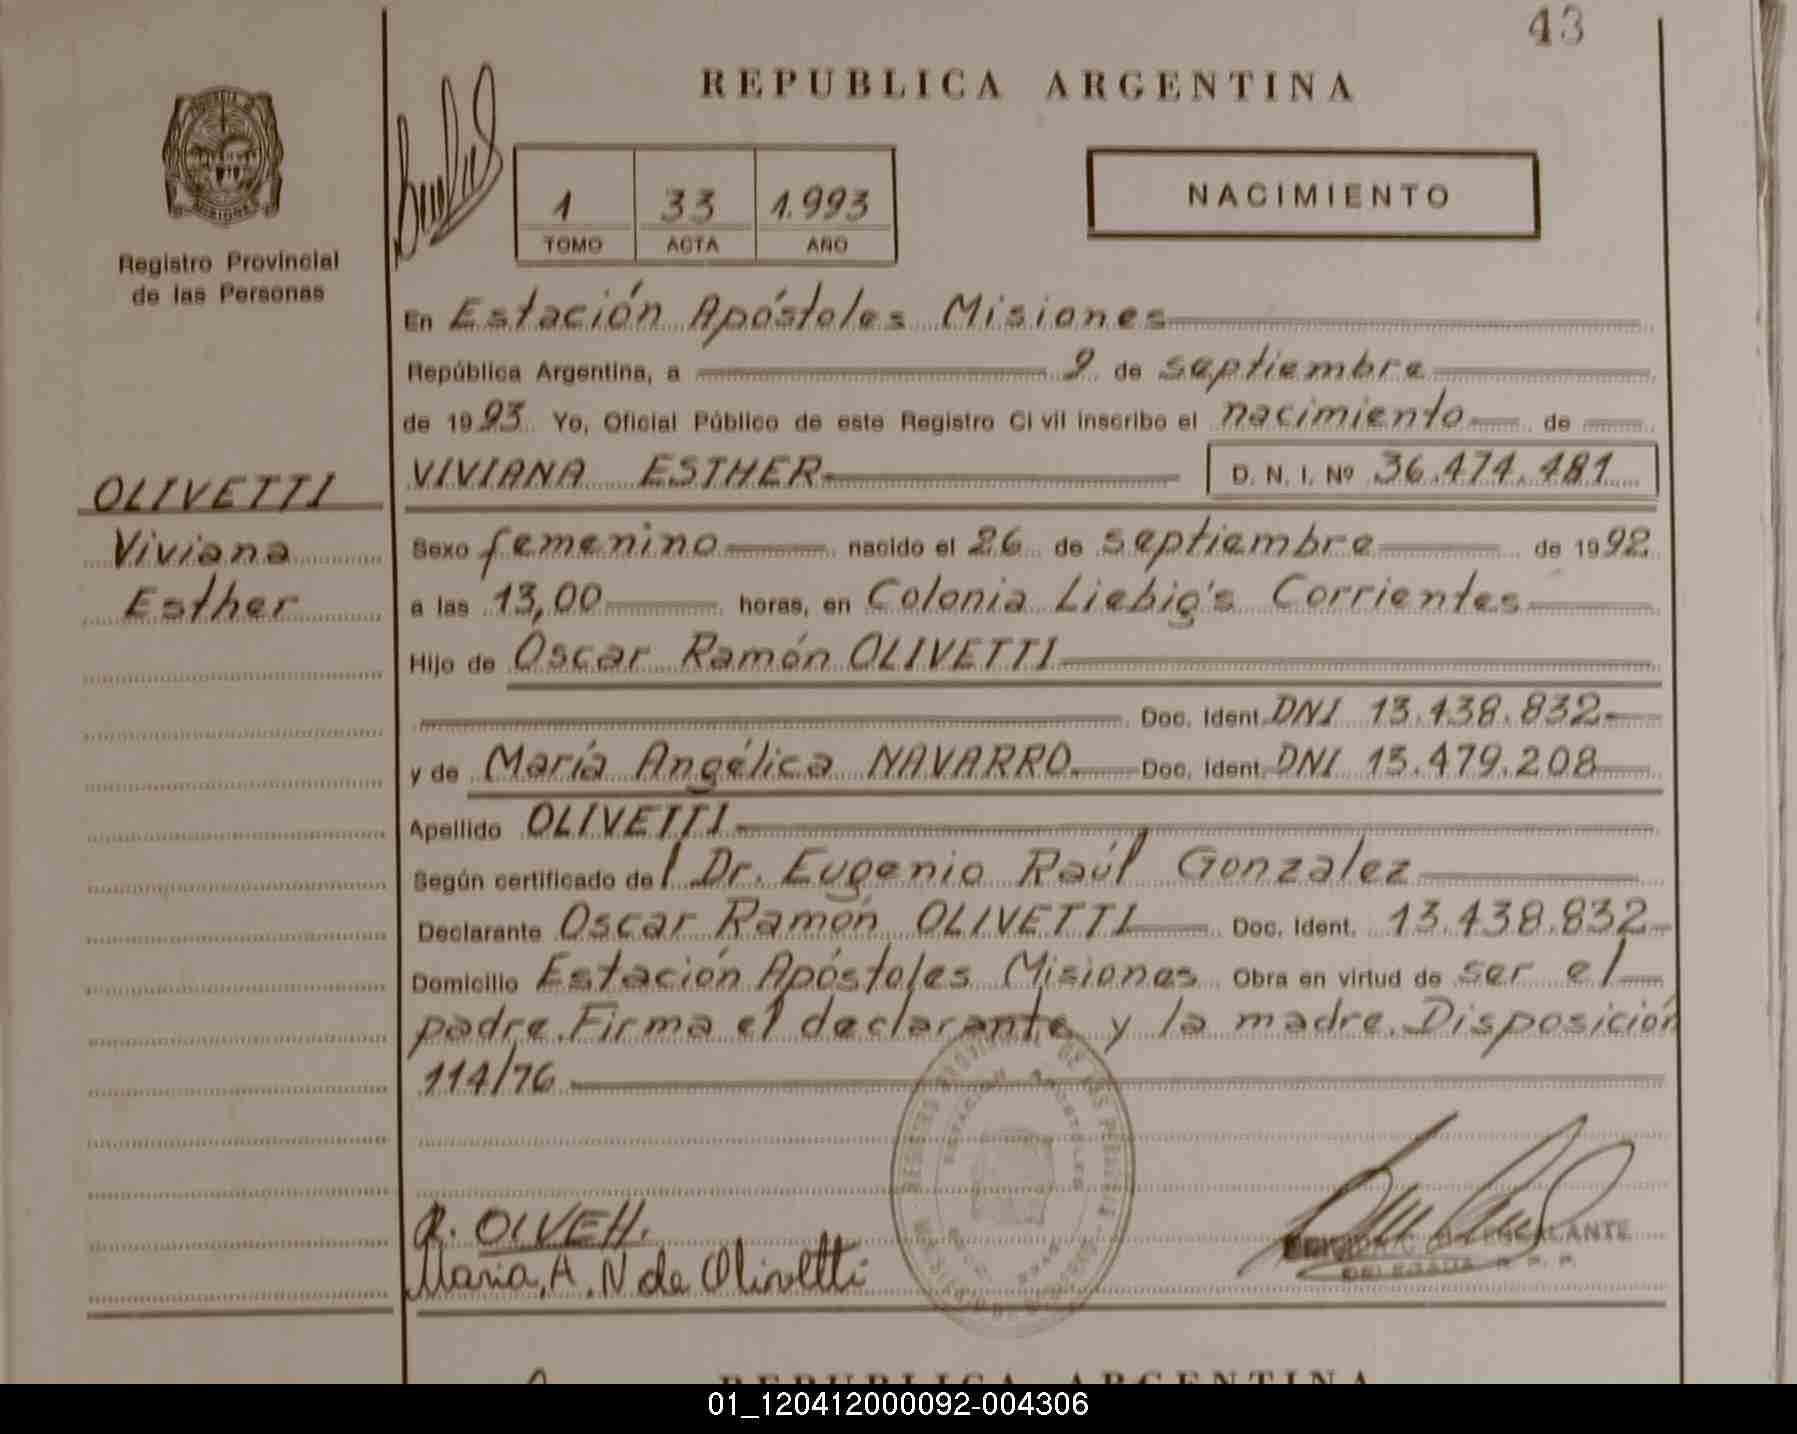 43
REPUBLICA ARGENTINA
1 33 1.993
TOMO ACTA AÑO
NACIMIENTO
MISIONES
Registro Provincial
de las Personas
OLIVETTI
Viviana
Esther
En Estación Apóstoles Misiones
República Argentina, a 9 de septiembre
de 1993 Yo, Oficial Público de este Registro Civil inscribo el nacimiento de
VIVIANA ESTHER D. N. I. Nº 36.474.481
Sexo femenino nacido el 26 de septiembre de 1992
a las 13,00 horas, en Colonia Liebig's Corrientes
Hijo de Oscar Ramón OLIVETTI
Doc. Ident. DNI 13.438.832
y de María Angélica NAVARRO Doc. Ident. DNI 13.479.208
Apellido OLIVETTI
Según certificado del Dr. Eugenio Raúl Gonzalez
Declarante Oscar Ramón OLIVETTI Doc. Ident. 13.438.832
Domicilio Estación Apóstoles Misiones Obra en virtud de ser el
padre. Firma el declarante y la madre. Disposición
114/76
REGISTRO PROVINCIAL DE LAS PERSONAS
ESTACION APOSTOLES
María A. N de Olivetti
DELEGADA R. P. P.
REPUBLICA ARGENTINA
01_120412000092-004306